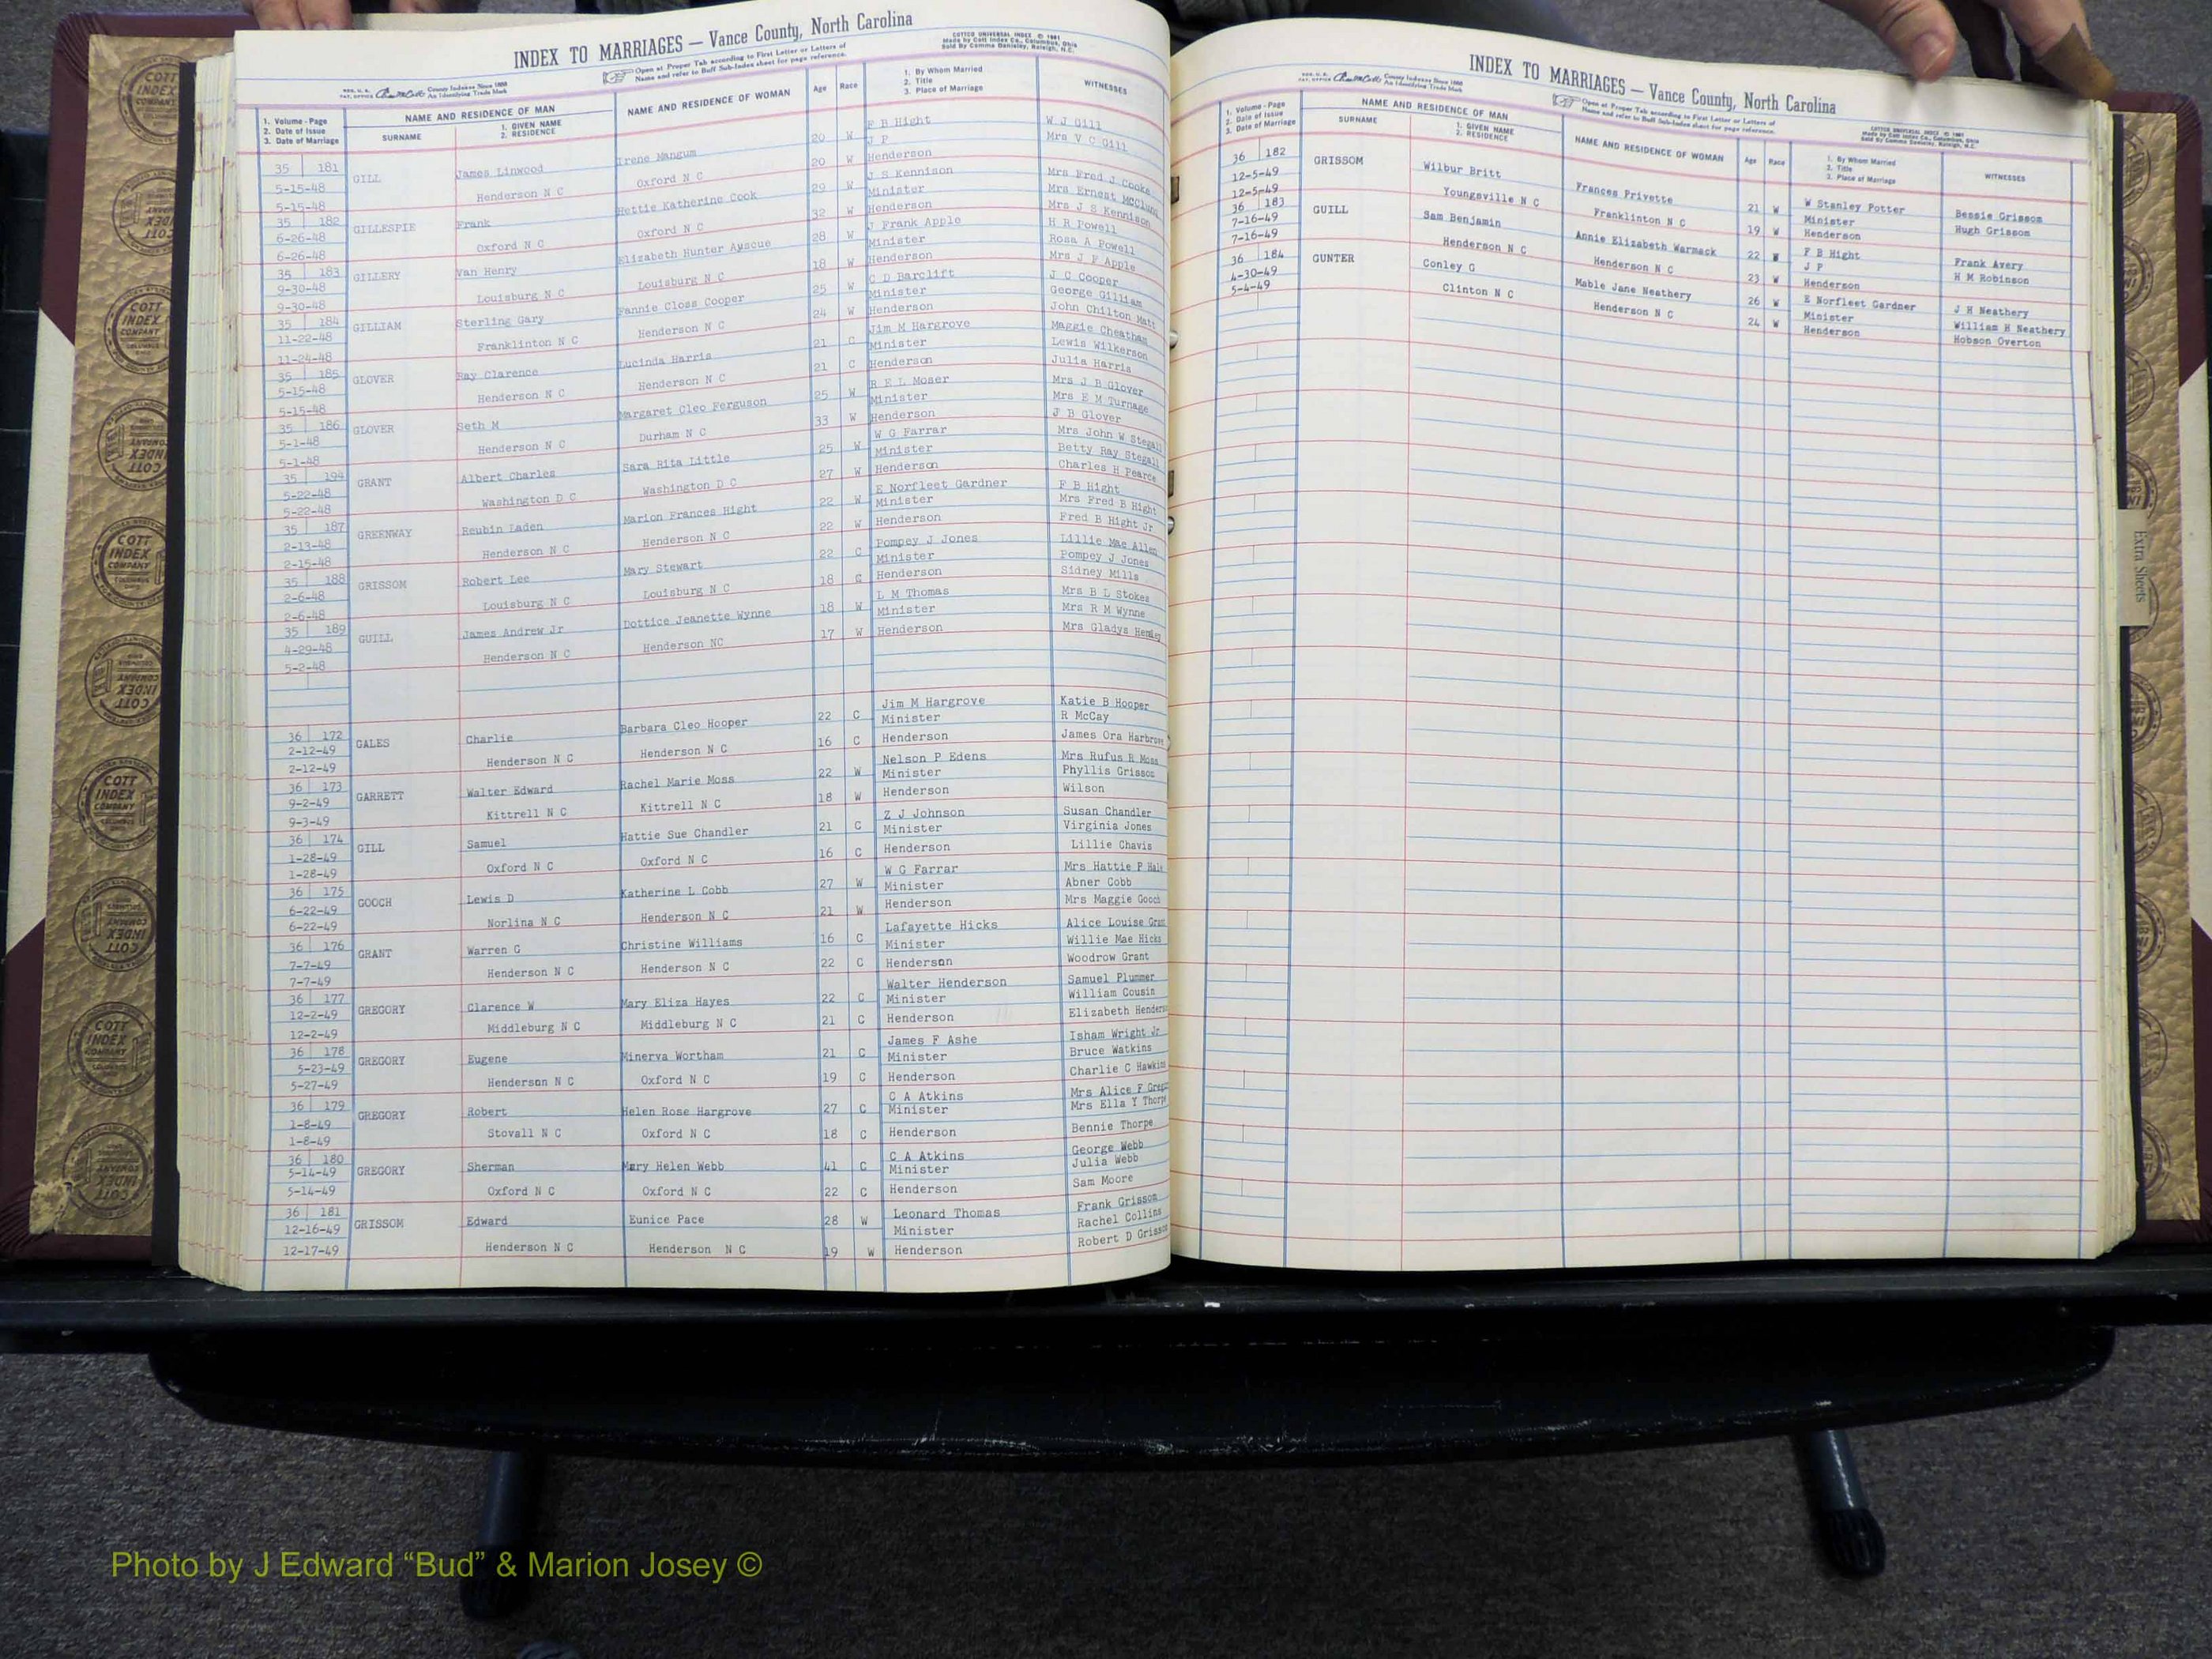 INDEX TO MARRIAGES — Vance County, North Carolina
Open at Proper Tab according to First Letter or Letters of
Name and refer to Buff Sub-Index sheet for page reference.
COTTCO UNIVERSAL INDEX © 1961
Made by Cott Index Co., Columbus, Ohio
County Indexes Since 1888
An Identifying Trade Mark
1. Volume - Page
2. Date of Issue
3. Date of Marriage
NAME AND RESIDENCE OF MAN
SURNAME
1. GIVEN NAME
2. RESIDENCE
NAME AND RESIDENCE OF WOMAN
Age Race
1. By Whom Married
2. Title
3. Place of Marriage
WITNESSES
35 181 GILL James Linwood Irene Mangum 20 W F B Hight W J Gill
5-15-48 Henderson N C Oxford N C 20 W J P Mrs V C Gill
5-15-48 Henderson
35 182 GILLESPIE Frank Hettie Katherine Cook 29 W J S Kennison Mrs Fred J Cooke
6-26-48 Oxford N C Oxford N C 32 W Minister Mrs Ernest McClung
6-26-48 Henderson Mrs J S Kennison
35 183 GILLERY Van Henry Elizabeth Hunter Ayscue 28 W J Frank Apple H R Powell
9-30-48 Louisburg N C Louisburg N C 18 W Minister Rosa A Powell
9-30-48 Henderson Mrs J F Apple
35 184 GILLIAM Sterling Gary Fannie Closs Cooper 25 W C D Barclift J C Cooper
11-22-48 Franklinton N C Henderson N C 24 W Minister George Gilliam
11-24-48 Henderson John Chilton Matt
35 185 GLOVER Ray Clarence Lucinda Harris 21 C Jim M Hargrove Maggie Cheatham
5-15-48 Henderson N C Henderson N C 21 C Minister Lewis Wilkerson
5-15-48 Henderson Julia Harris
35 186 GLOVER Seth M Margaret Cleo Ferguson 25 W R E L Moser Mrs J B Glover
5-1-48 Henderson N C Durham N C 33 W Minister Mrs E M Turnage
5-1-48 Henderson J B Glover
35 194 GRANT Albert Charles Sara Rita Little 25 W W G Farrar Mrs John W Stegall
5-22-48 Washington D C Washington D C 27 W Minister Betty Ray Stegall
5-22-48 Henderson Charles H Pearce
35 187 GREENWAY Reubin Laden Marion Frances Hight 22 W E Norfleet Gardner F B Hight
2-13-48 Henderson N C Henderson N C 22 W Minister Mrs Fred B Hight
2-15-48 Henderson Fred B Hight Jr
35 188 GRISSOM Robert Lee Mary Stewart 22 C Pompey J Jones Lillie Mae Allen
2-6-48 Louisburg N C Louisburg N C 18 C Minister Pompey J Jones
2-6-48 Henderson Sidney Mills
35 189 GUILL James Andrew Jr Dottice Jeanette Wynne 18 W L M Thomas Mrs B L Stokes
4-29-48 Henderson N C Henderson NC 17 W Minister Mrs R M Wynne
5-2-48 Henderson Mrs Gladys
36 172 GALES Charlie Barbara Cleo Hooper 22 C Jim M Hargrove Katie B Hooper
2-12-49 Henderson N C Henderson N C 16 C Minister R McCay
2-12-49 Henderson James Ora Harbrove
36 173 GARRETT Walter Edward Rachel Marie Moss 22 W Nelson P Edens Mrs Rufus R Moss
9-2-49 Kittrell N C Kittrell N C 18 W Minister Phyllis Grissom
9-3-49 Henderson Wilson
36 174 GILL Samuel Hattie Sue Chandler 21 C Z J Johnson Susan Chandler
1-28-49 Oxford N C Oxford N C 16 C Minister Virginia Jones
1-28-49 Henderson Lillie Chavis
36 175 GOOCH Lewis D Katherine L Cobb 27 W W G Farrar Mrs Hattie P Hale
6-22-49 Norlina N C Henderson N C 21 W Minister Abner Cobb
6-22-49 Henderson Mrs Maggie Gooch
36 176 GRANT Warren G Christine Williams 16 C Lafayette Hicks Alice Louise Grant
7-7-49 Henderson N C Henderson N C 22 C Minister Willie Mae Hicks
7-7-49 Henderson Woodrow Grant
36 177 GREGORY Clarence W Mary Eliza Hayes 22 C Walter Henderson Samuel Plummer
12-2-49 Middleburg N C Middleburg N C 21 C Minister William Cousin
12-2-49 Henderson Elizabeth Henderso
36 178 GREGORY Eugene Minerva Wortham 21 C James F Ashe Isham Wright Jr
5-23-49 Henderson N C Oxford N C 19 C Minister Bruce Watkins
5-27-49 Henderson Charlie C Hawkins
36 179 GREGORY Robert Helen Rose Hargrove 27 C C A Atkins Mrs Alice F Grego
1-8-49 Stovall N C Oxford N C 18 C Minister Mrs Ella Y Thorpe
1-8-49 Henderson Bennie Thorpe
36 180 GREGORY Sherman Mary Helen Webb 41 C C A Atkins George Webb
5-14-49 Oxford N C Oxford N C 22 C Minister Julia Webb
5-14-49 Henderson Sam Moore
36 181 GRISSOM Edward Eunice Pace 28 W Leonard Thomas Frank Grissom
12-16-49 Henderson N C Henderson N C 19 W Minister Rachel Collins
12-17-49 Henderson Robert D Grissom
INDEX TO MARRIAGES — Vance County, North Carolina
Open at Proper Tab according to First Letter or Letters of
Name and refer to Buff Sub-Index sheet for page reference.
County Indexes Since 1888
An Identifying Trade Mark
COTTCO UNIVERSAL INDEX © 1961
Made by Cott Index Co., Columbus, Ohio
1. Volume - Page
2. Date of Issue
3. Date of Marriage
NAME AND RESIDENCE OF MAN
SURNAME
1. GIVEN NAME
2. RESIDENCE
NAME AND RESIDENCE OF WOMAN
Age Race
1. By Whom Married
2. Title
3. Place of Marriage
WITNESSES
36 182 GRISSOM Wilbur Britt Frances Privette 21 W W Stanley Potter Bessie Grissom
12-5-49 Youngsville N C Franklinton N C 19 W Minister Hugh Grissom
12-5-49 Henderson
36 183 GUILL Sam Benjamin Annie Elizabeth Warmack 22 W F B Hight Frank Avery
7-16-49 Henderson N C Henderson N C 23 W J P H M Robinson
7-16-49 Henderson
36 184 GUNTER Conley G Mable Jane Neathery 26 W E Norfleet Gardner J H Neathery
4-30-49 Clinton N C Henderson N C 24 W Minister William H Neathery
5-4-49 Henderson Hobson Overton
Extra Sheets
COTT
INDEX
COMPANY
Photo by J Edward “Bud” & Marion Josey ©